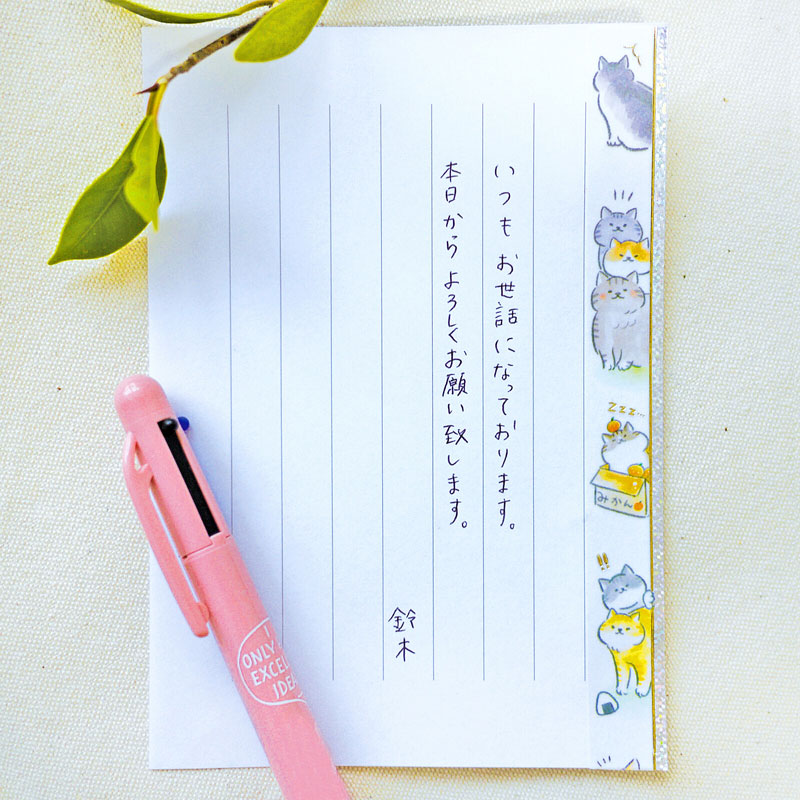 いつもお世話になっております。
本日からよろしくお願い致します。
鈴木
zzz...
みかん
!!
ONLY
EXCEL
IDEA